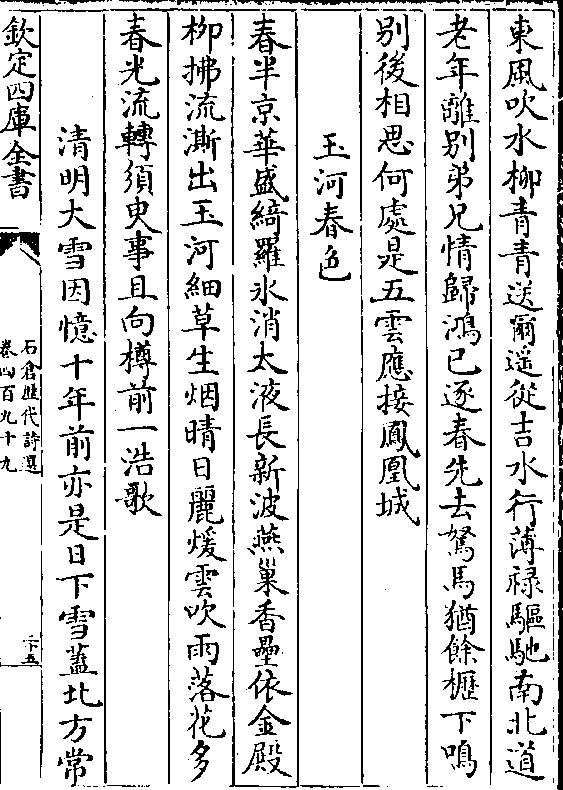 東風吹水柳青青送爾遥從吉水行薄祿驅馳南北道
老年離别弟兄情歸鴻已逐春先去駑馬猶餘櫪下鳴
别後相思何處是五雲應接鳳凰城
玉河春色
春半京華盛綺羅氷消太液長新波燕巢香壘依金殿
柳拂流澌出玉河細草生烟晴日麗煖雲吹雨落花多
春光流轉須臾事且向樽前一浩歌
清明大雪因憶十年前亦是日下雪蓋北方常
欽定四庫全書
石倉歴代詩選
卷四百九十九
二十五